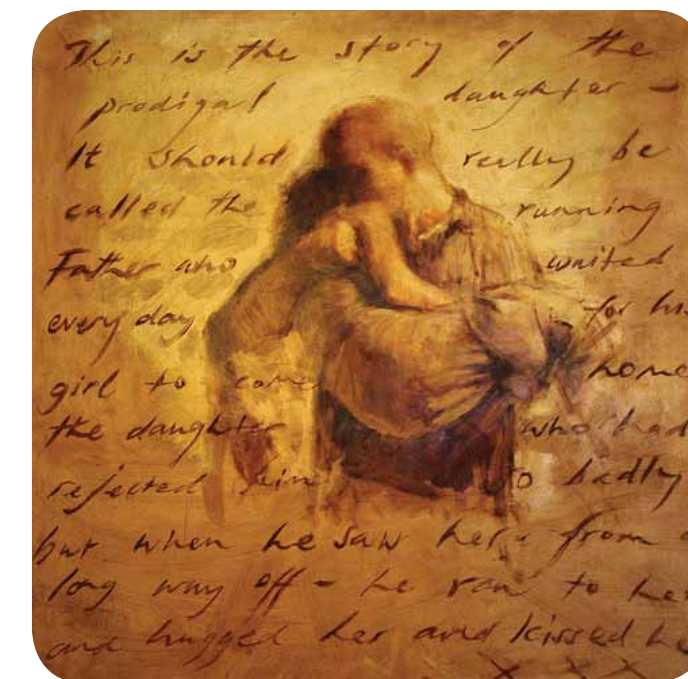 This is the story of the
prodigal daughter -
It should really be
called the running
Father who waited
every day for his
girl to come home
the daughter who had
rejected him so badly
but when he saw her from a
long way off - he ran to her
and hugged her and kissed he
x x x